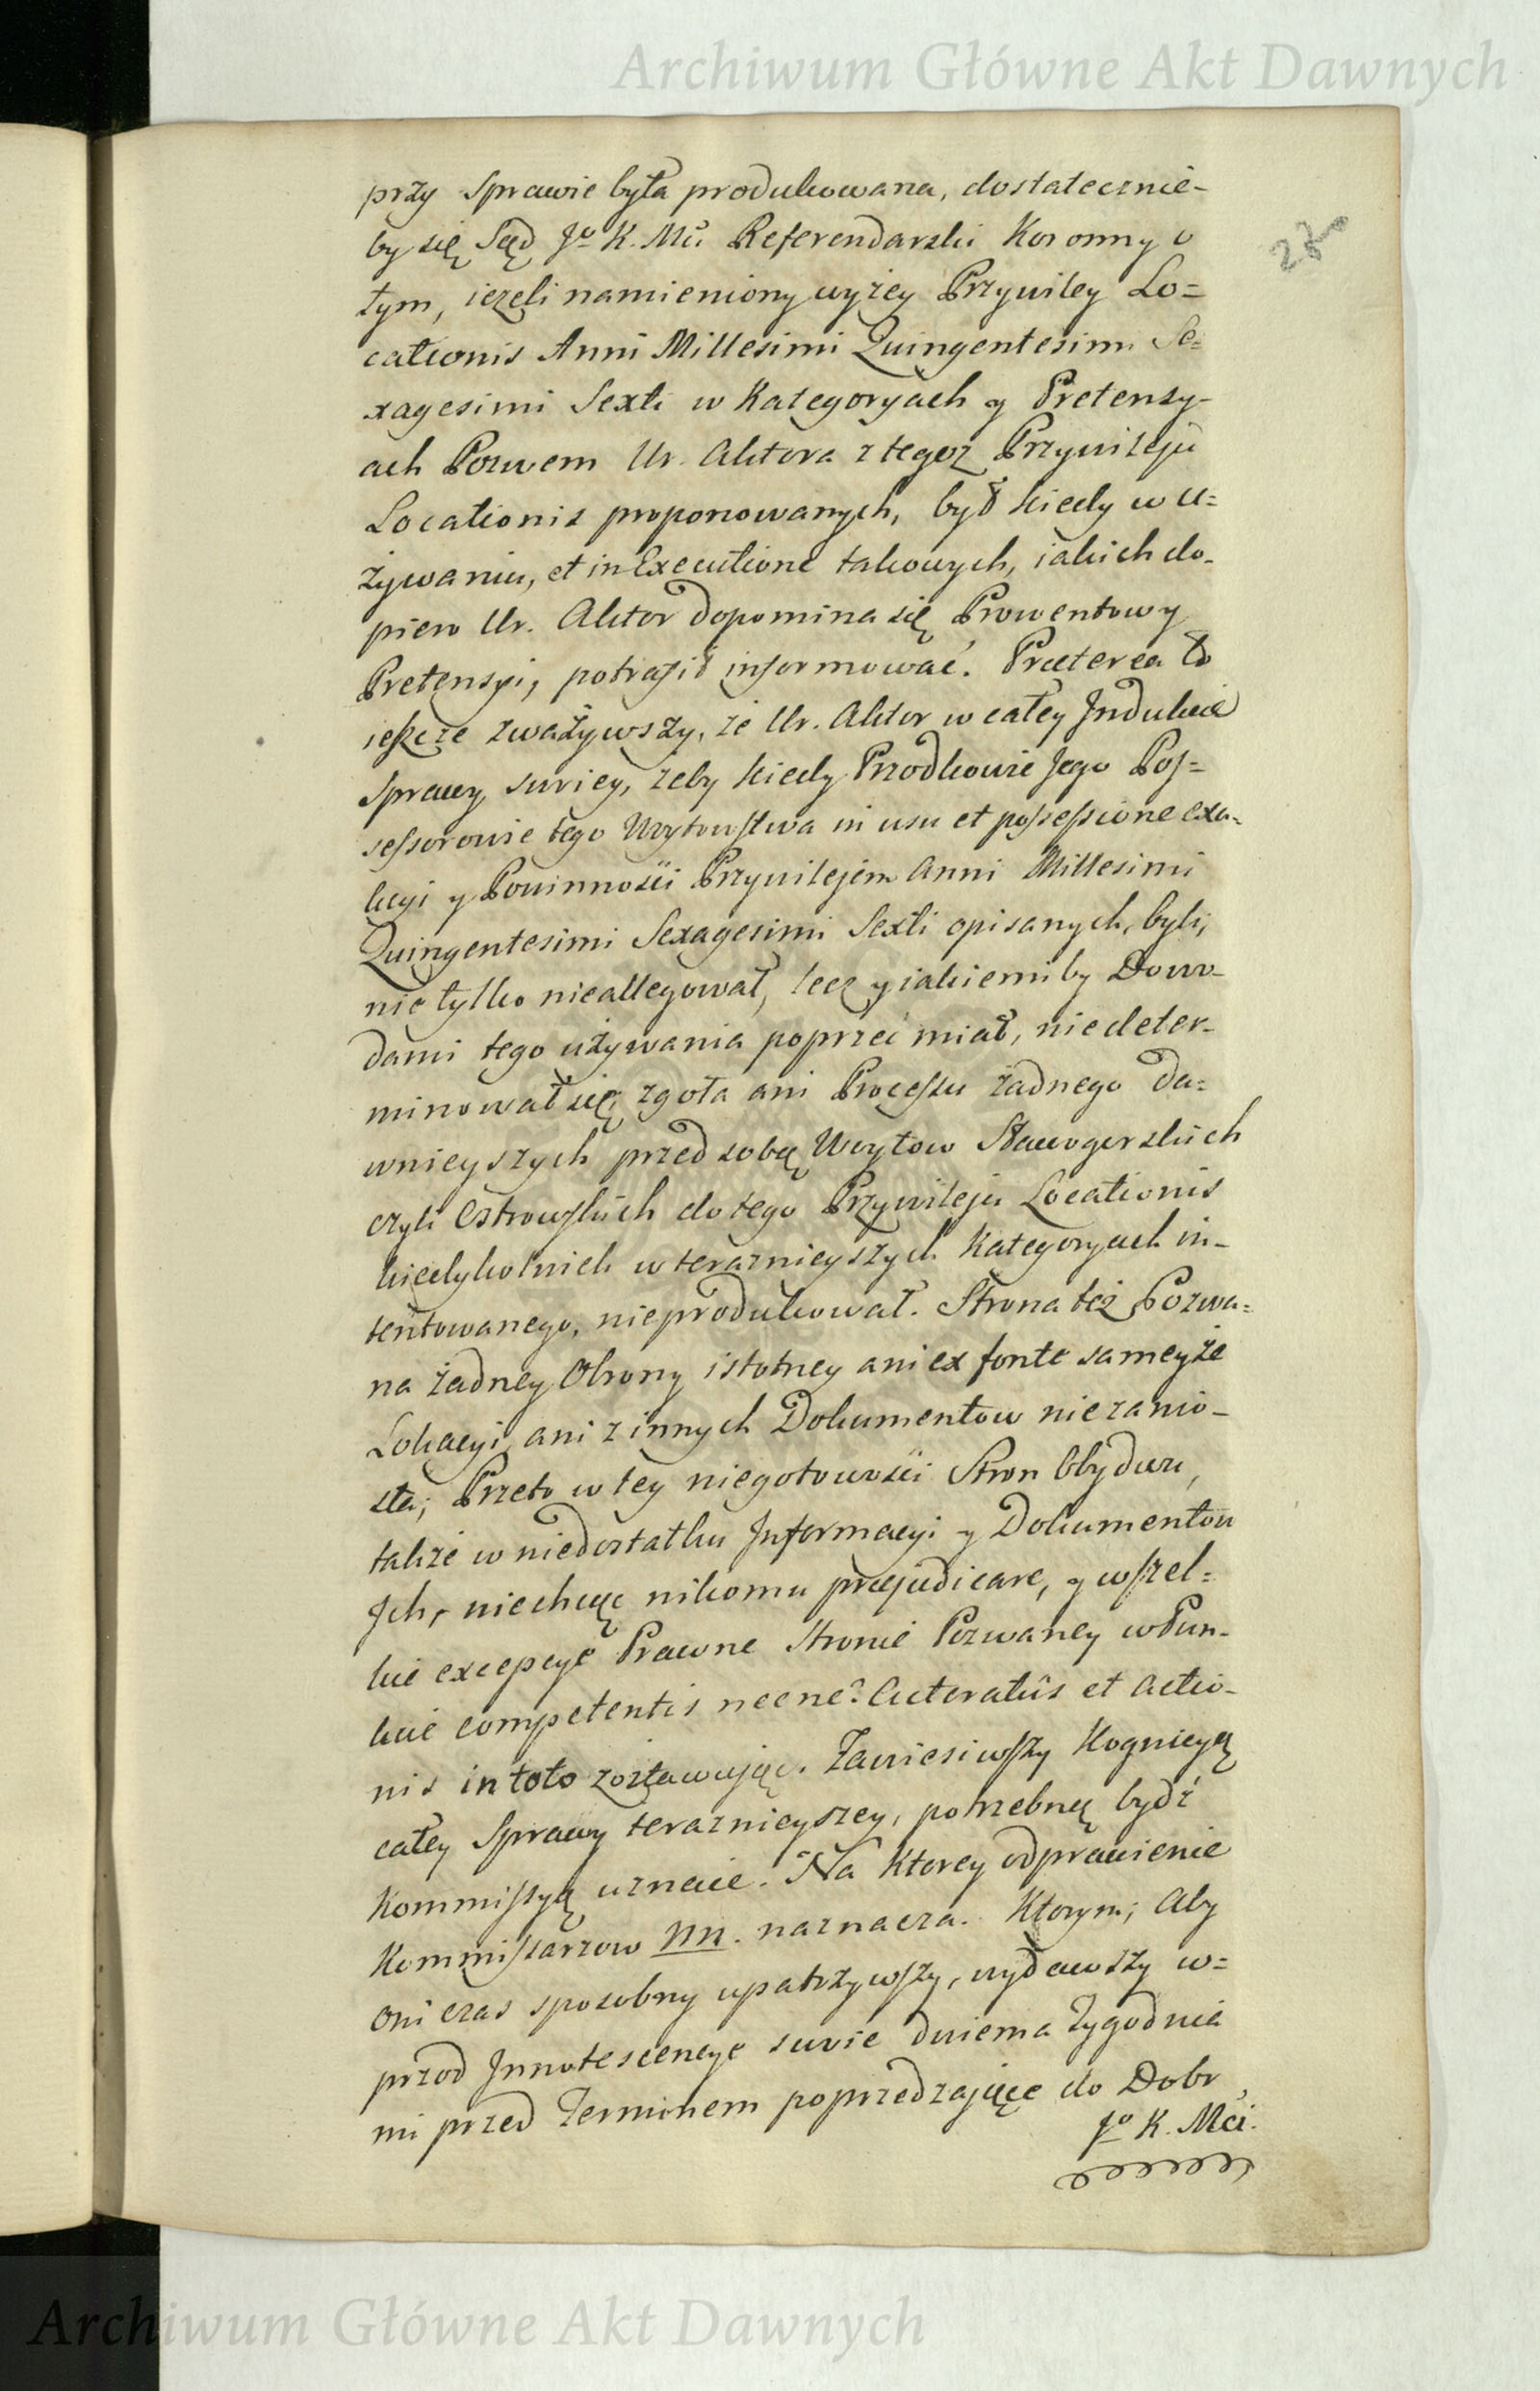 Archiwum Główne Akt Dawnych
przy Sprawie była produkowana, dostatecznie-
by się Sąd Jo K. Mći Referendarski Koronny o
tym, ieżeli namieniony wyżey Przywiley Lo=
cationis Anni Millesimi Quingentesimi Se=
xagesimi Sexti w Kategoryach y Pretensy-
ach Pozwem Ur. Aktora z tegoż Przywileju
Locationis proponowanych, był kiedy w u=
żywaniu, et in Executione takowych, iakich do-
piero Ur. Aktor dopomina się Prowentowy
Pretensyi, potrafił informować. Præterea to
ieszcze zważywszy, że Ur. Aktor w całey Indukcie
Sprawy swoiey, żeby kiedy Przodkowie Jego Pos=
sessorowie tego Woytowstwa in usu et possessione exa-
kcyi y Powinności Przywilejem Anni Millesimi
Quingentesimi Sexagesimi Sexti opisanych, byli,
nie tylko nieallegował, lecz y iakiemi by Dowo-
dami tego używania poprzeć miał, niedeter-
minował się, zgoła ani Processu żadnego da=
wnieyszych przed sobą Woytow
czyli Ostrowskich do tego Przywileju Locationis
kiedykolwiek w teraznieyszych Kategoryach in-
tentowanego, nieprodukował. Strona też Pozwa=
na żadney Obrony istotney ani ex fonte sameyże
Lokacyi, ani z innych Dokumentow niezanio-
sła; Przeto w tey niegotowości Stron Obydwu,
także w niedostatku Informacyi y Dokumentow
Ich, niechcąc nikomu præjudicare, y wszel=
kie excepcye Prawne Stronie Pozwaney w Pun-
kcie competentis necne? Actoratûs et Actio-
nis in toto zostawując. Zawiesiwszy Kognicyą
całey Sprawy teraznieyszey, potrzebną bydź
Kommissyą uznaie. Na ktorey odprawienie
Kommissarzow NN. naznacza. Ktorym, Aby
oni czas sposobny upatrzywszy, wydawszy w=
przod Innotescencye swoie dwiema Tygodnia
mi przed Terminem poprzedzające do Dobr
Jo K. Mći.
Archiwum Główne Akt Dawnych